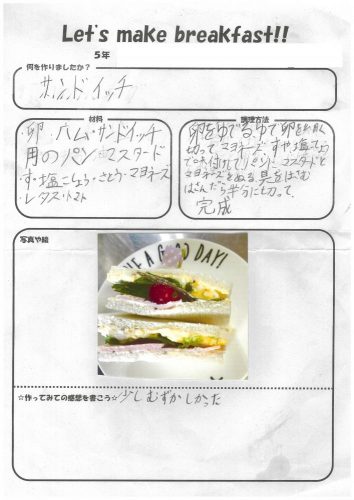 Let's make breakfast!!
5年
何を作りましたか?
サンドイッチ
材料
・卵・ハム・サンドイッチ
用のパン・マスタード
・す・塩こしょう・さとう・マヨネーズ
・レタス・トマト
調理方法
卵をゆでる。ゆで卵を細く
切って マヨネーズ、すや塩こしょう
で味付けて パンに マスタードと
マヨネーズをぬる 具をはさむ
はさんだら半分に切って、
完成
写真や絵
A GOOD DAY!
☆作ってみての感想を書こう☆ 少しむずかしかった